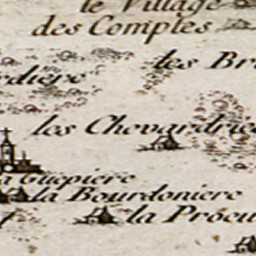 le Village
des Comptes
les Br
rdiere
les Chevardrie
a Guepiere
la Bourdoniere
la Procu